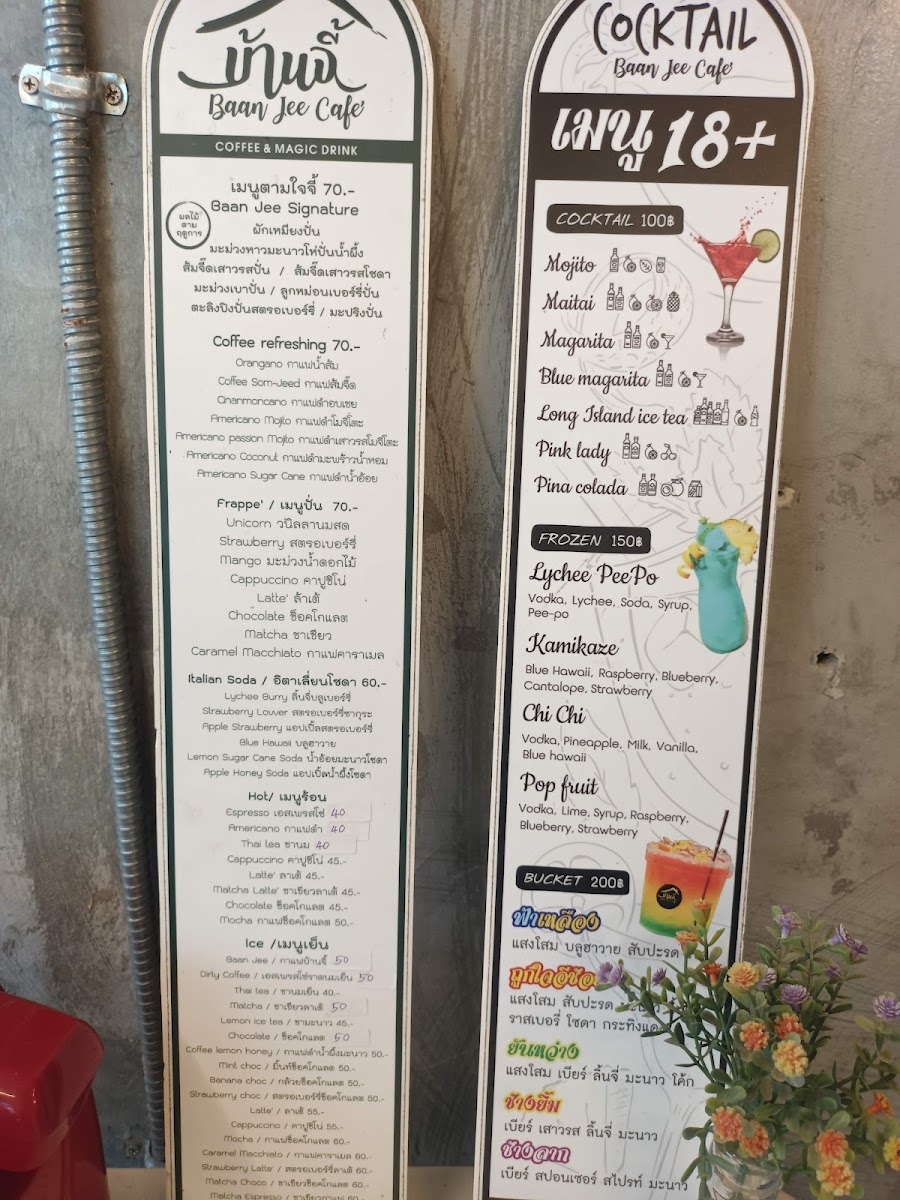 บ้านจี้
Baan Jee Cafe'
COFFEE & MAGIC DRINK
เมนูตามใจจี้ 70.-
Baan Jee Signature
ผลไม้
ตาม
ฤดูการ
ผักเหมียงปั่น
มะม่วงหาวมะนาวโห่ปั่นน้ำผึ้ง
ส้มจี๊ดเสาวรสปั่น / ส้มจี๊ดเสาวรสโซดา
มะม่วงเบาปั่น / ลูกหม่อนเบอร์รี่ปั่น
ตะลิงปิงปั่นสตรอเบอร์รี่ / มะปริงปั่น
Coffee refreshing 70.-
Orangano กาแฟน้ำส้ม
Coffee Som-Jeed กาแฟส้มจี๊ด
Cinanmoncano กาแฟดำอบเชย
Americano Mojito กาแฟดำโมจีโต๊ะ
Americano passion Mojito กาแฟดำเสาวรสโมจีโต๊ะ
Americano Coconut กาแฟดำมะพร้าวน้ำหอม
Americano Sugar Cane กาแฟดำน้ำอ้อย
Frappe' / เมนูปั่น 70.-
Unicorn วนิลลานมสด
Strawberry สตรอเบอร์รี่
Mango มะม่วงน้ำดอกไม้
Cappuccino คาปูชิโน่
Latte' ลาเต้
Chocolate ช็อคโกแลต
Matcha ชาเชียว
Caramel Macchiato กาแฟคาราเมล
Italian Soda / อิตาเลี่ยนโซดา 60.-
Lychee Burry ลิ้นจี่บลูเบอร์รี่
Strawberry Lovver สตรอเบอร์รี่ซากุระ
Apple Strawberry แอปเปิ้ลสตรอเบอร์รี่
Blue Hawaii บลูฮาวาย
Lemon Sugar Cane Soda น้ำอ้อยมะนาวโซดา
Apple Honey Soda แอปเปิ้ลน้ำผึ้งโซดา
Hot/ เมนูร้อน
Espresso เอสเพรสโซ่ 40
Americano กาแฟดำ 40
Thai tea ชานม 40
Cappuccino คาปูชิโน่ 45.-
Latte' ลาเต้ 45.-
Matcha Latte' ชาเขียวลาเต้ 45.-
Chocolate ช็อคโกแลต 45.-
Mocha กาแฟช็อคโกแลต 50.-
Ice /เมนูเย็น
Baan Jee / กาแฟบ้านจี้ 50
Dirty Coffee / เอสเพรสโซ่ราดนมเย็น 50
Thai tea / ชานมเย็น 40.-
Matcha / ชาเขียวลาเต้ 50
Lemon ice tea / ชามะนาว 45.-
Chocolate / ช็อคโกแลต 50
Coffee lemon honey / กาแฟดำน้ำผึ้งมะนาว 50.-
Mint choc / มิ้นท์ช็อคโกแลต 50.-
Banana choc / กล้วยช็อคโกแลต 50.-
Strawberry choc / สตรอเบอร์รี่ช็อคโกแลต 50.-
Latte' / ลาเต้ 55.-
Cappuccino / คาปูชิโน่ 55.-
Mocha / กาแฟช็อคโกแลต 60.-
Caramel Macchiato / กาแฟคาราเมล 60.-
Strawberry Latte' / สตรอเบอร์รี่ลาเต้ 60.-
Matcha Choco / ชาเขียวช็อคโกแลต 60.-
Matcha Espresso / ชาเขียวกาแฟ 60.-
COCKTAIL
Baan Jee Cafe'
เมนู 18+
COCKTAIL 100฿
Mojito
Maitai
Magarita
Blue magarita
Long Island ice tea
Pink lady
Pina colada
FROZEN 150฿
Lychee PeePo
Vodka, Lychee, Soda, Syrup,
Pee-po
Kamikaze
Blue Hawaii, Raspberry, Blueberry,
Cantalope, Strawberry
Chi Chi
Vodka, Pineapple, Milk, Vanilla,
Blue hawaii
Pop fruit
Vodka, Lime, Syrup, Raspberry,
Blueberry, Strawberry
BUCKET 200฿
ฟ้าเหลือง
แสงโสม บลูฮาวาย สับปะรด
ถูกใจอีซ้อ
แสงโสม สับปะรด
ราสเบอรี่ โซดา กระทิงแดง
ยันหว่าง
แสงโสม เบียร์ ลิ้นจี่ มะนาว โค้ก
ช้างยิ้ม
เบียร์ เสาวรส ลิ้นจี่ มะนาว
ช้างลาก
เบียร์ สปอนเซอร์ สไปรท์ มะนาว